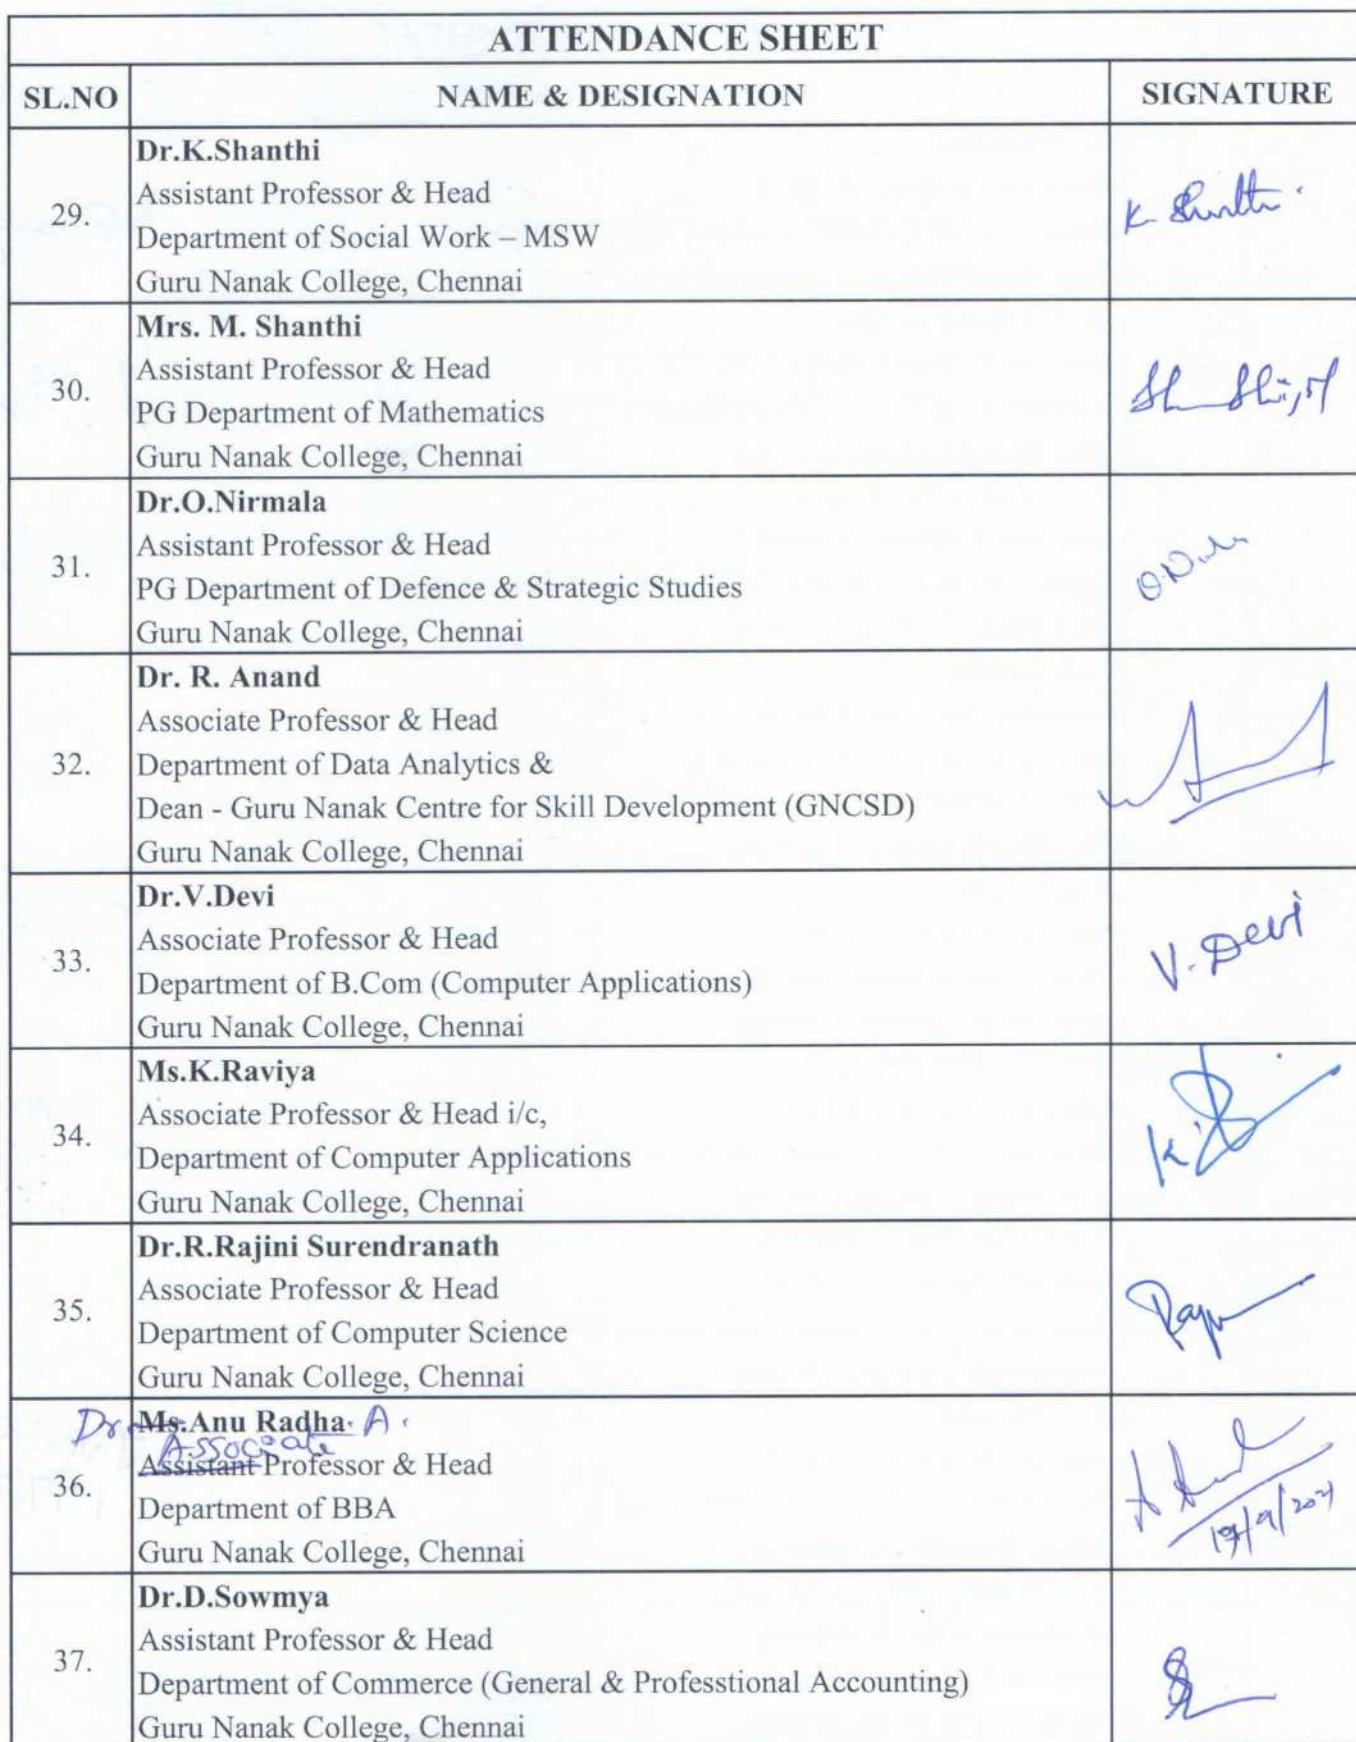 ATTENDANCE SHEET
SL.NO NAME & DESIGNATION SIGNATURE
Dr.K.Shanthi
Assistant Professor & Head
29.
Department of Social Work – MSW
Guru Nanak College, Chennai
Mrs. M. Shanthi
Assistant Professor & Head
30.
PG Department of Mathematics
Guru Nanak College, Chennai
Dr.O.Nirmala
Assistant Professor & Head
31.
PG Department of Defence & Strategic Studies
Guru Nanak College, Chennai
Dr. R. Anand
Associate Professor & Head
32. Department of Data Analytics &
Dean - Guru Nanak Centre for Skill Development (GNCSD)
Guru Nanak College, Chennai
Dr.V.Devi
Associate Professor & Head
33. V. Devi
Department of B.Com (Computer Applications)
Guru Nanak College, Chennai
Ms.K.Raviya
Associate Professor & Head i/c,
34.
Department of Computer Applications
Guru Nanak College, Chennai
Dr.R.Rajini Surendranath
Associate Professor & Head
35.
Department of Computer Science
Guru Nanak College, Chennai
Dr Ms.Anu Radha. A.
Associate
Assistant Professor & Head
36.
Department of BBA
Guru Nanak College, Chennai
Dr.D.Sowmya
Assistant Professor & Head
37.
Department of Commerce (General & Professtional Accounting)
Guru Nanak College, Chennai